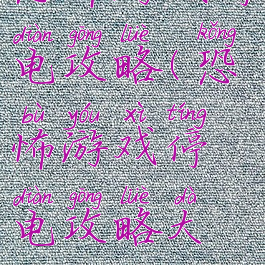 diàn gōng lüè kǒng
电攻略(恐
bù yóu xì tíng
怖游戏停
diàn gōng lüè dà
电攻略大